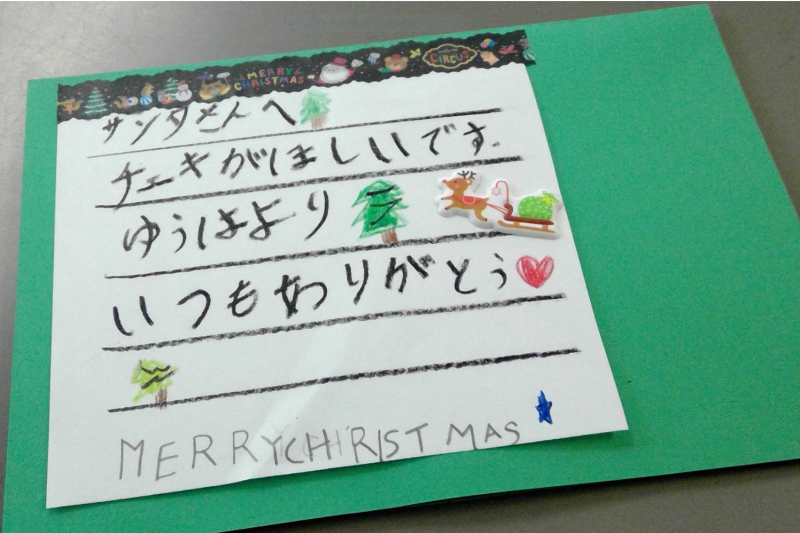 MERRY CHRISTMAS
CIRCUS
サンタさんへ
チェキがほしいです.
ゆうはより
いつもありがとう
MERRYCHIRISTMAS